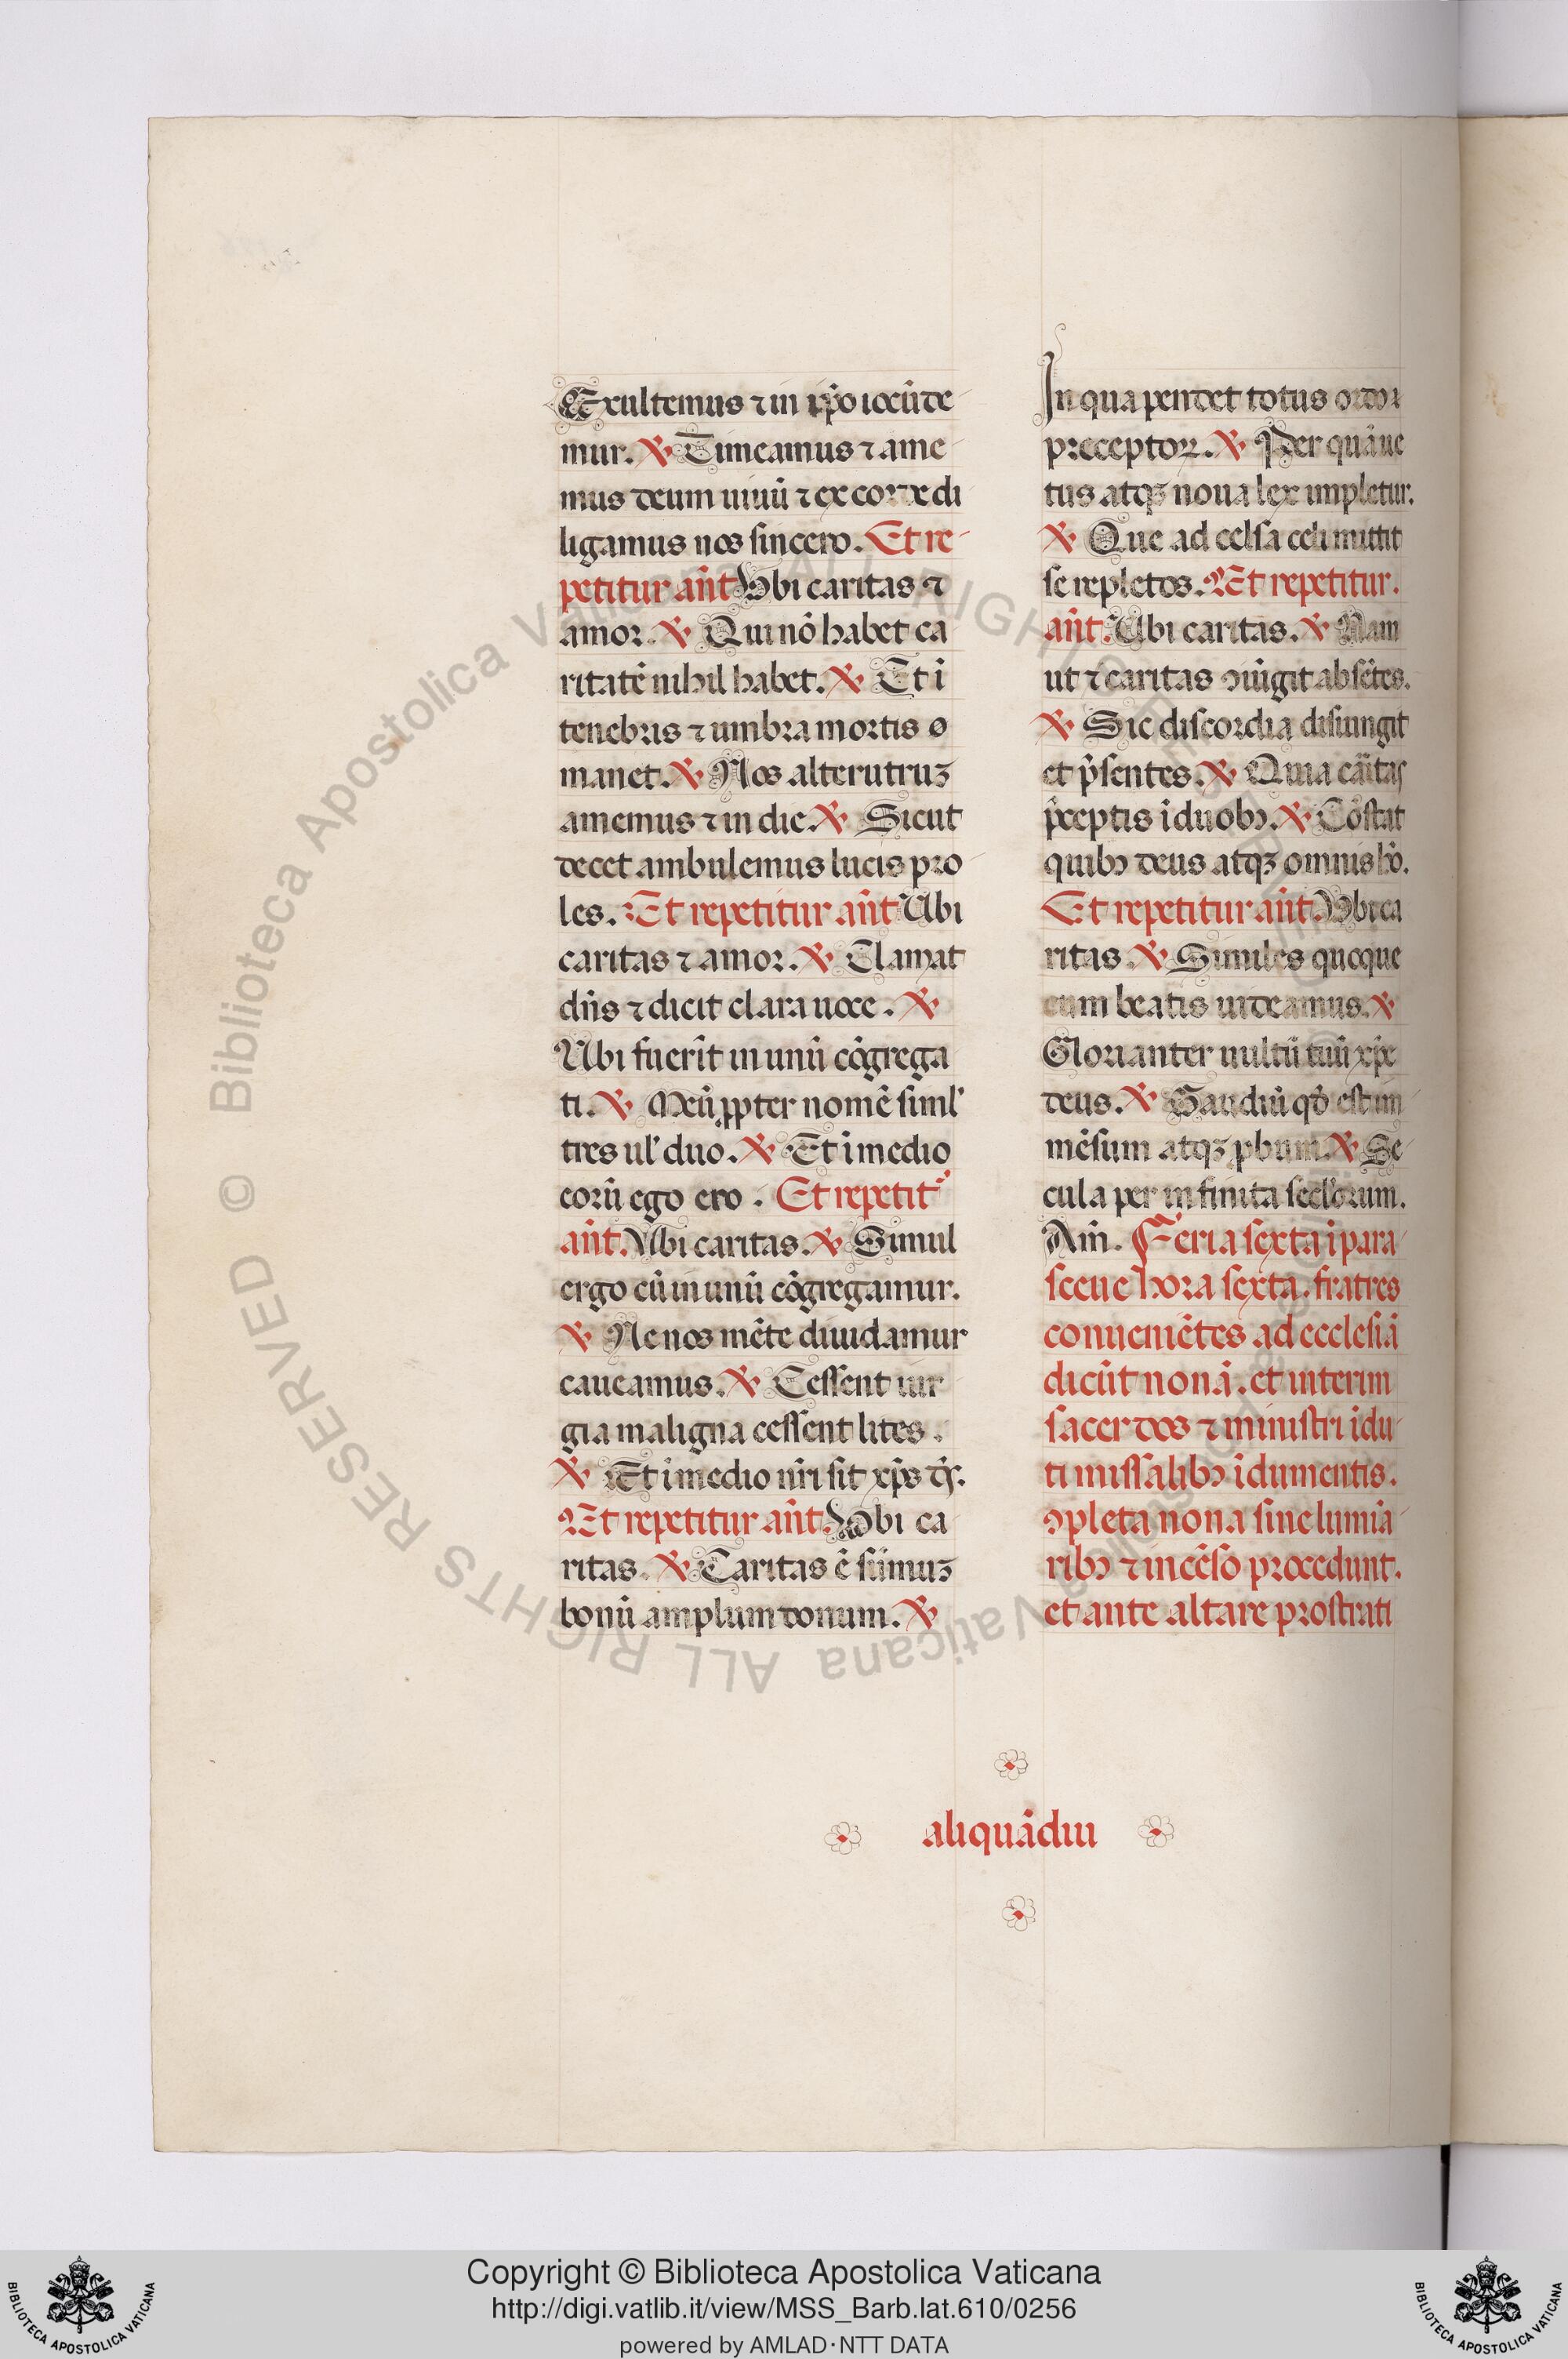 Exultemus ⁊ in ip̄o iocūde
mur. ℣ Timeamus ⁊ ame
mus deum uiuū ⁊ ex corde di
ligamus nos sincero. Et re
petitur añt Vbi caritas ⁊
amor. ℣ Qui nō habet ca
ritatē nihil habet. ℣ Et ī
tenebris ⁊ umbra mortis
manet. ℣ Nos alterutruꝫ
amemus ⁊ in die. ℣ Sicut
decet ambulemus lucis pro
les. Et repetitur añt Vbi
caritas ⁊ amor. ℣ Clamat
dñs ⁊ dicit clara uoce. ℣
Vbi fuerīt in unū cōgrega
ti. ℣ Meū ꝓpter nomē siml'
tres ul' duo. ℣ Et ī medio
eorū ego ero. Et repetit᷑
añt. Vbi caritas. ℣ Simul
ergo cū in unū cōgregamur.
℣ Ne nos mēte diuidamur
caueamus. ℣ Cessent iur
gia maligna cessent lites.
℣ Et ī medio nr̄i sit xp̄s
Et repetitur añt. Vbi ca
ritas. ℣ Caritas ē sūmuꝫ
bonū amplum donum. ℣
In qua pendet totus ordo
preceptoꝝ. ℣ Per quā ue
tus atqꝫ noua lex impletur.
℣ Que ad celsa celi mittit
se repletos. Et repetitur.
añt. Vbi caritas. ℣ Nam
ut ⁊ caritas ↄiūgit absētes.
℣ Sic discordia disiungit
et p̄sentes. ℣ Quia cāitas
p̄ceptis ī duobꝫ. ℣ Cōstat
quibꝫ deus atqꝫ omnis hō.
Et repetitur añt. Vbi ca
ritas. ℣ Similes quoque
cum beatis uideamus. ℣
Glorianter uultū tuū xp̄e
deus. ℣ Gaudiū qd̄ est im
mēsum atqꝫ ꝓbum ℣ Se
cula per infinita seclorum.
Am̄. Feria sexta ī para
sceue hora sexta. fratres
conueniētes ad ecclesiā
dicūt nonā. et interim
sacerdos ⁊ ministri īdu
ti missalibꝫ īdumentis.
ↄpleta nona sine lumīa
ribꝫ ⁊ incēso procedunt.
et ante altare prostrati
aliquādiu
© Biblioteca Apostolica Vaticana ALL RIGHTS RESERVED
Copyright © Biblioteca Apostolica Vaticana
http://digi.vatlib.it/view/MSS_Barb.lat.610/0256
powered by AMLAD·NTT DATA
BIBLIOTECA APOSTOLICA VATICANA
BIBLIOTECA APOSTOLICA VATICANA